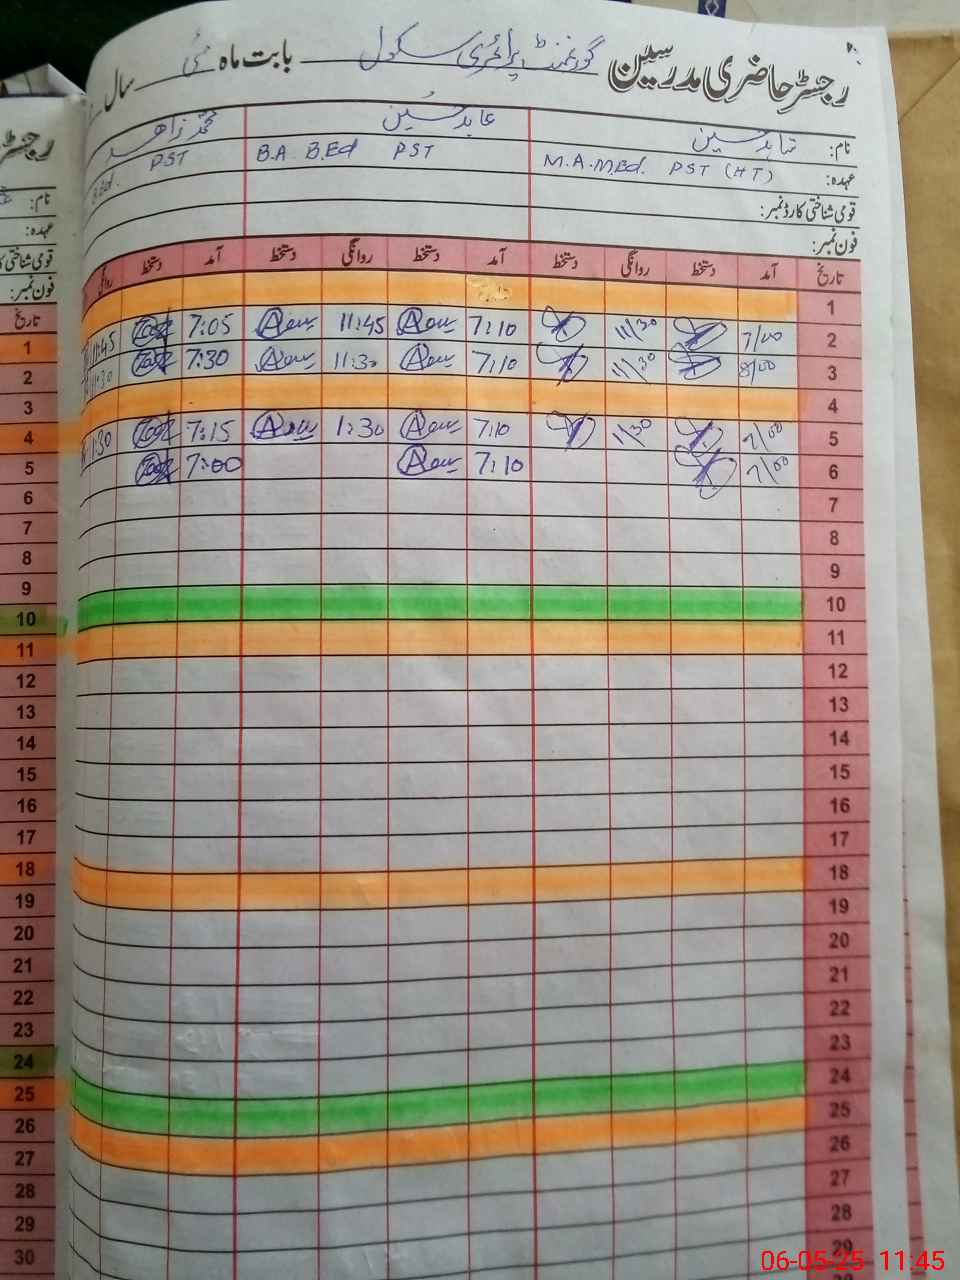 رجسٹر حاضری مدرسین گورنمنٹ پرائمری سکول بابت ماہ مئی سال
نام: شاہد حسین عابد حسین محمد زاہد
عہدہ: M.A.M.Ed. PST (HT) B.A B.Ed PST B.Ed. PST
قومی شناختی کارڈ نمبر:
فون نمبر:
تاریخ آمد دستخط روانگی دستخط آمد دستخط روانگی دستخط آمد دستخط روانگی
1
2 7/00 11/30 7:10 11:45 7:05 11:45
3 8/00 11/30 7:10 11:30 7:30 11:30
4
5 7/00 1/30 7:10 1:30 7:15 1:30
6 7/00 7:10 7:00
7
8
9
10
11
12
13
14
15
16
17
18
19
20
21
22
23
24
25
26
27
28
29
رجسٹر
نام:
عہدہ:
قومی شناختی
فون نمبر:
تاریخ
1
2
3
4
5
6
7
8
9
10
11
12
13
14
15
16
17
18
19
20
21
22
23
24
25
26
27
28
29
30
06-05-25 11:45